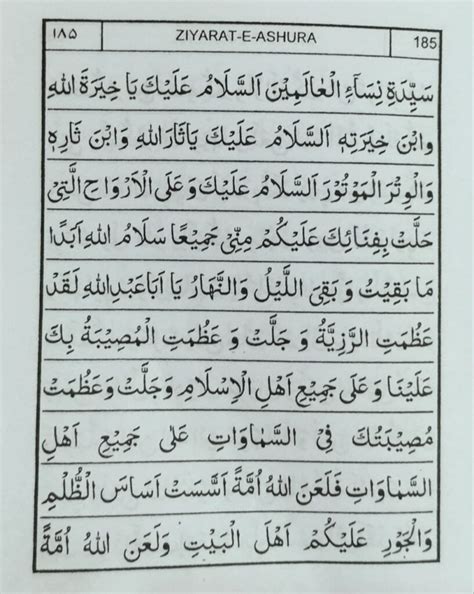 ۱۸۵ ZIYARAT-E-ASHURA 185
سَيِّدَةِ نِسَآءِ الْعَالَمِيْنَ اَلسَّلَامُ عَلَيْكَ يَا خِيَرَةَ اللهِ
وابْنَ خِيَرَتِهٖ اَلسَّلَامُ عَلَيْكَ يَاثَارَاللهِ وَابْنَ ثَارِهٖ
وَالْوِتْرَ الْمَوْتُوْرَ اَلسَّلَامُ عَلَيْكَ وَعَلَى الْاَرْوَاحِ الَّتِيْ
حَلَّتْ بِفِنَائِكَ عَلَيْكُمْ مِنِّيْ جَمِيْعًا سَلَامُ اللهِ اَبَدًا
مَا بَقِيْتُ وَ بَقِيَ اللَّيْلُ وَالنَّهَارُ يَا اَبَاعَبْدِاللهِ لَقَدْ
عَظُمَتِ الرَّزِيَّةُ وَ جَلَّتْ وَ عَظُمَتِ الْمُصِيْبَةُ بِكَ
عَلَيْنَا وَ عَلٰى جَمِيْعِ اَهْلِ الْاِسْلَامِ وَجَلَّتْ وَعَظُمَتْ
مُصِيْبَتُكَ فِيْ السَّمَاوَاتِ عَلٰى جَمِيْعِ اَهْلِ
السَّمَاوَاتِ فَلَعَنَ اللهُ اُمَّةً اَسَّسَتْ اَسَاسَ الظُّلْمِ
وَالْجَوْرِ عَلَيْكُمْ اَهْلَ الْبَيْتِ وَلَعَنَ اللهُ اُمَّةً